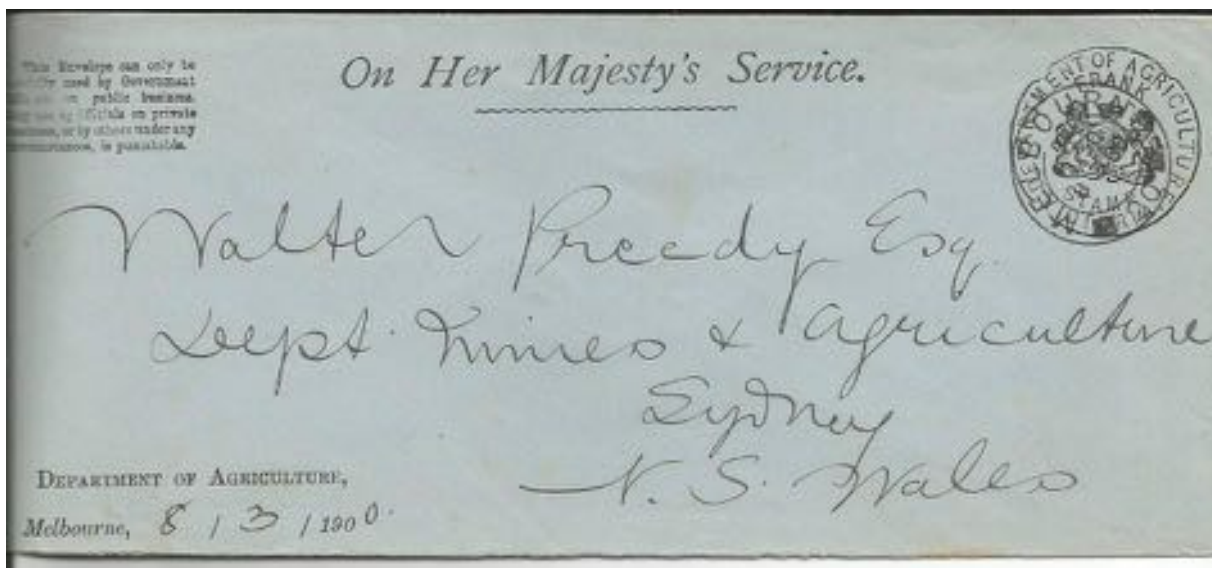 This Envelope can only be
used by Government
on public business.
officials on private
business, or by others under any
circumstances, is punishable.
On Her Majesty's Service.
DEPARTMENT OF AGRICULTURE
FRANK
STAMP
MELBOURNE
Walter Preedy Esq.
Dept. Mines & Agriculture
Sydney
N. S. Wales
DEPARTMENT OF AGRICULTURE,
Melbourne, 8 / 3 / 1900.